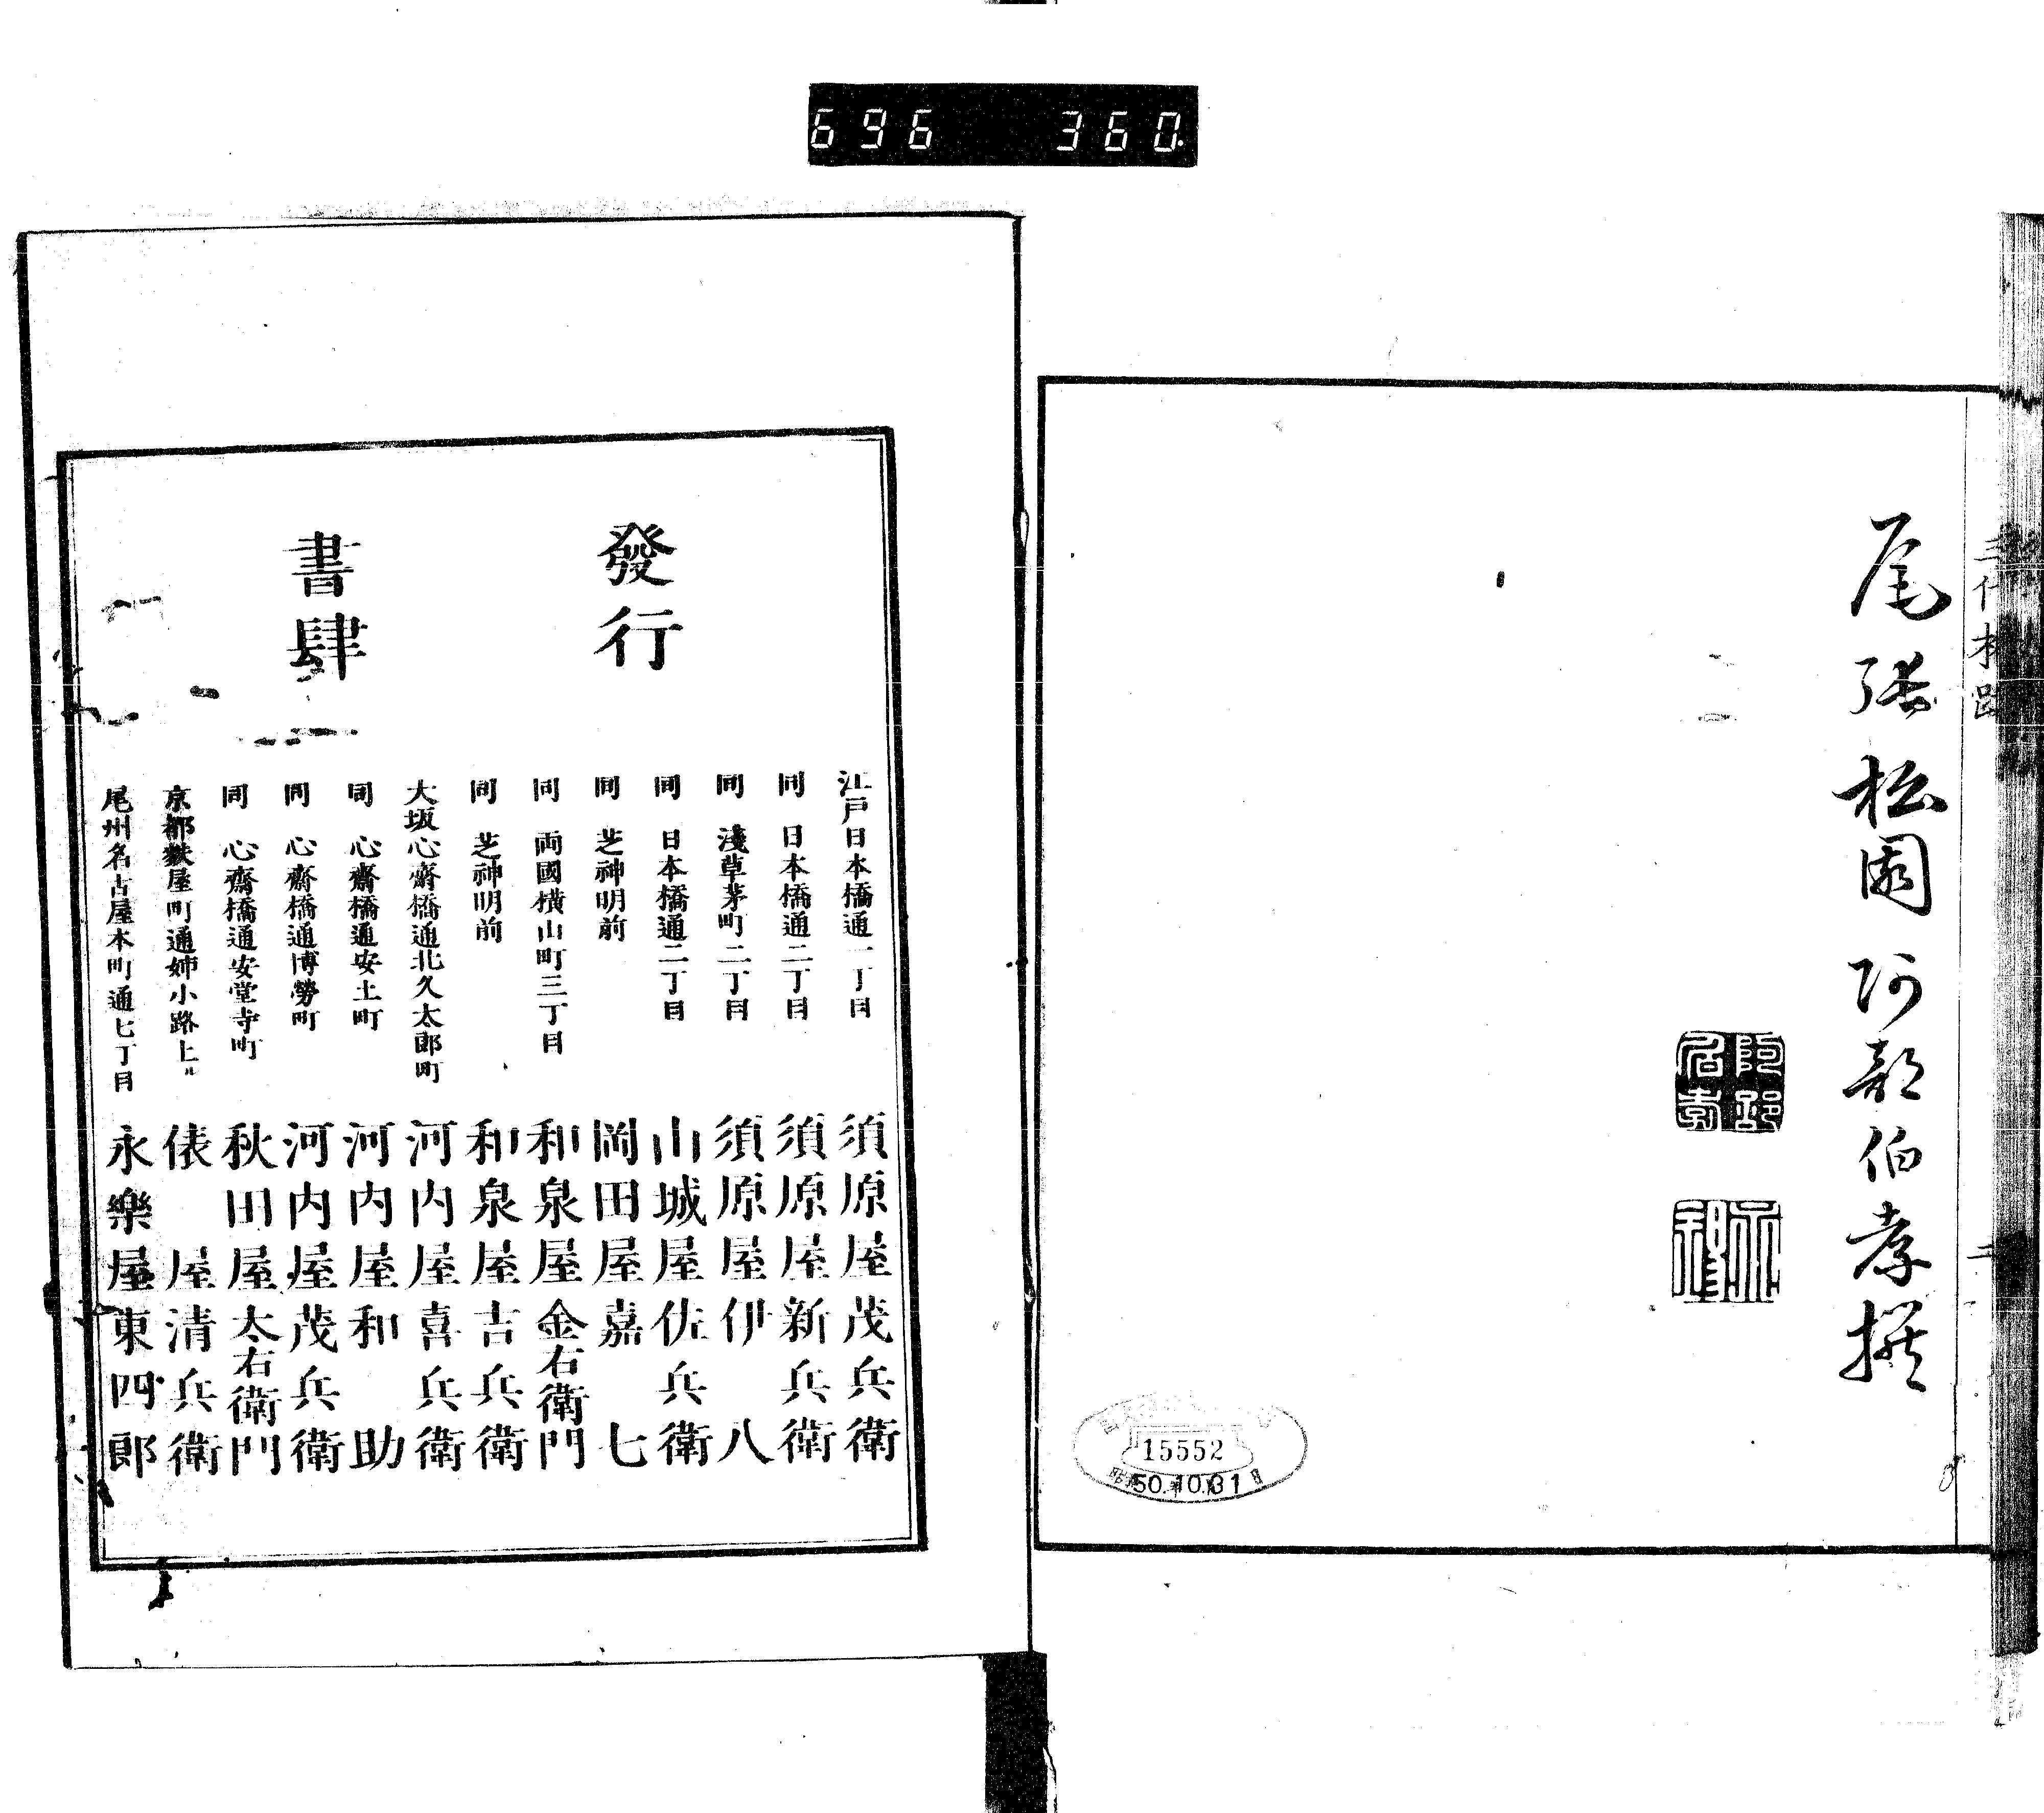 696 360
尾張松園阿部伯孝撰
15552
50.10.31
發行
書肆
江戸日本橋通一丁目 須原屋茂兵衛
同 日本橋通二丁目 須原屋新兵衛
同 淺草茅町二丁目 須原屋伊八
同 日本橋通二丁目 山城屋佐兵衛
同 芝神明前 岡田屋嘉七
同 両國横山町三丁目 和泉屋金右衛門
同 芝神明前 和泉屋吉兵衛
大坂心齋橋通北久太郎町 河内屋喜兵衛
同 心齋橋通安土町 河内屋和助
同 心齋橋通博勞町 河内屋茂兵衛
同 心齋橋通安堂寺町 秋田屋太右衛門
京都麩屋町通姉小路上ル 俵屋清兵衛
尾州名古屋本町通七丁目 永樂屋東四郎